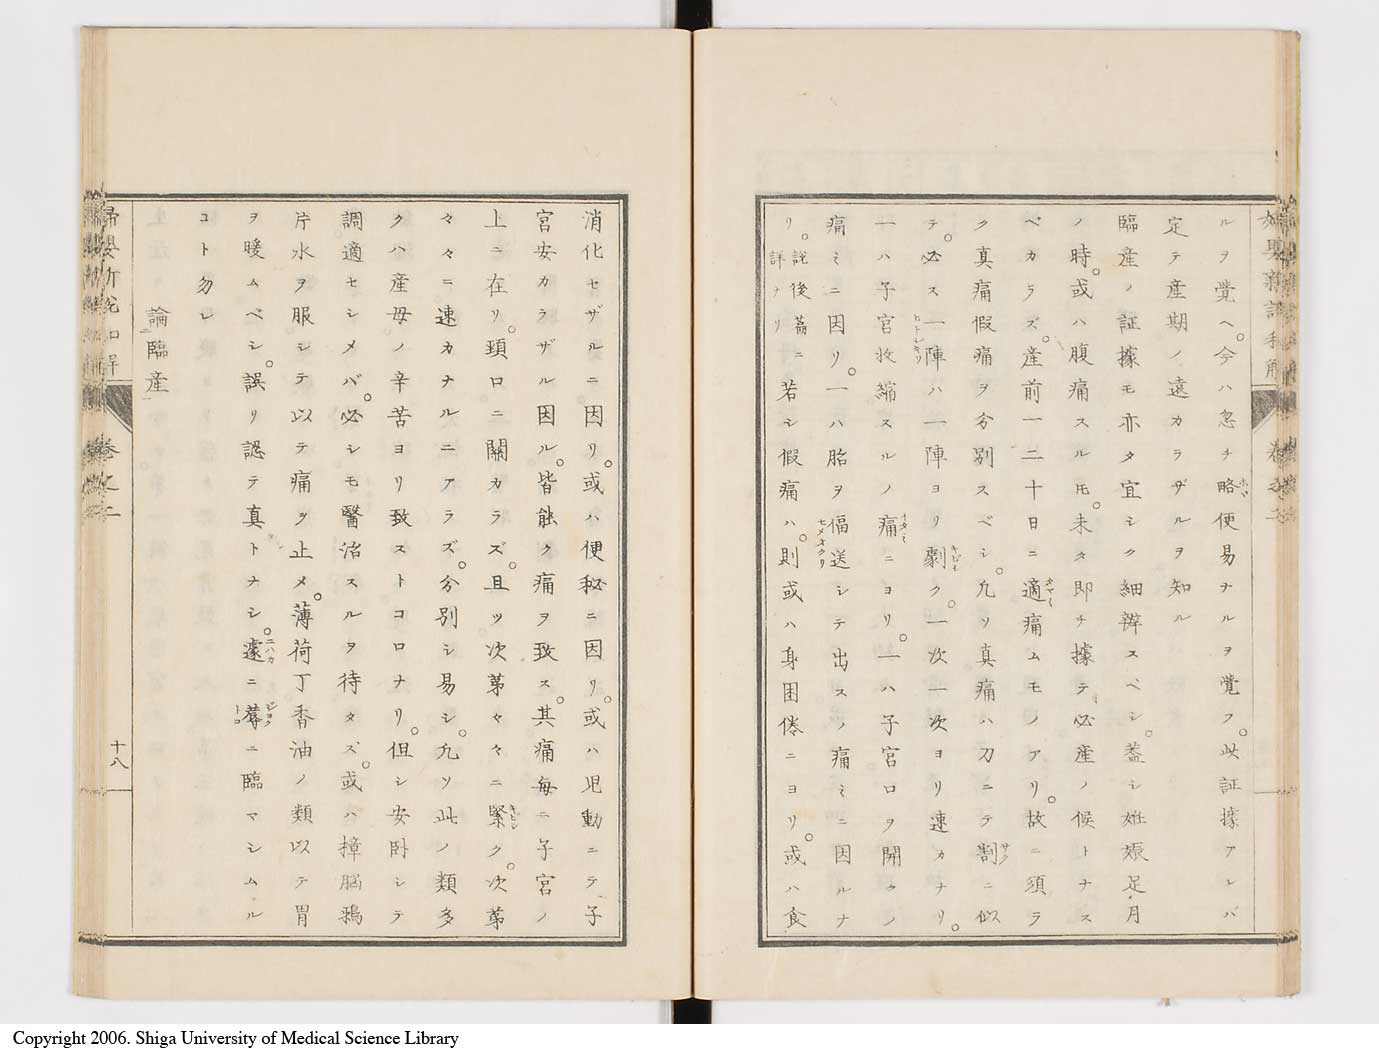 ルヲ覚ヘ。今ハ忽チ略ホボ便易ナルヲ覚フ。此証據アレバ
定テ産期ノ遠カラザルヲ知ル
臨産ノ証據モ亦タ宜シク細辨スベシ。蓋シ姙娠足月
ノ時。或ハ腹痛スルモ。未タ即チ據テ必産ノ候トナス
ベカラズ。産前一二十日ニ適タマ〳〵痛ムモノアリ。故ニ須ラ
ク真痛假痛ヲ分別スベシ。凡ソ真痛ハ刀ニテ割サクニ似
テ。必ス一陣ヒトシキリハ一陣ヨリ劇キビシク。一次一次ヨリ速カナリ。
一ハ子宮收縮スルノ痛イタミニヨリ。一ハ子宮口ヲ開クノ
痛ミニ因リ。一ハ胎ヲ偪送セメオクリシテ出スノ痛ミニ因ルナ
リ。説後篇ニ詳ナリ若シ假痛ハ。則或ハ身困倦ニヨリ。或ハ食
婦嬰新説和解 巻之二
消化セザルニ因リ。或ハ便秘ニ因リ。或ハ児動ニテ子
宮安カラザル因ル。皆能ク痛ヲ致ス。其痛毎ニ子宮ノ
上ニ在リ。頚口ニ關カラズ。且ツ次第々々ニ緊キビシク。次第
々々ニ速カナルニアラズ。分別シ易シ。凡ソ此ノ類多
クハ産母ノ辛苦ヨリ致ストコロナリ。但シ安卧シテ
調適セシメバ。必シモ醫治スルヲ待タズ。或ハ樟脳鴉
片水ヲ服シテ以テ痛ヲ止メ。薄荷丁香油ノ類以テ胃
ヲ暖ムベシ。誤リ認テ真トナシ。遽ニハカニ蓐ジョクトコニ臨マシムル
コト勿レ
論臨産
婦嬰新説和解 巻之二 十八
Copyright 2006. Shiga University of Medical Science Library